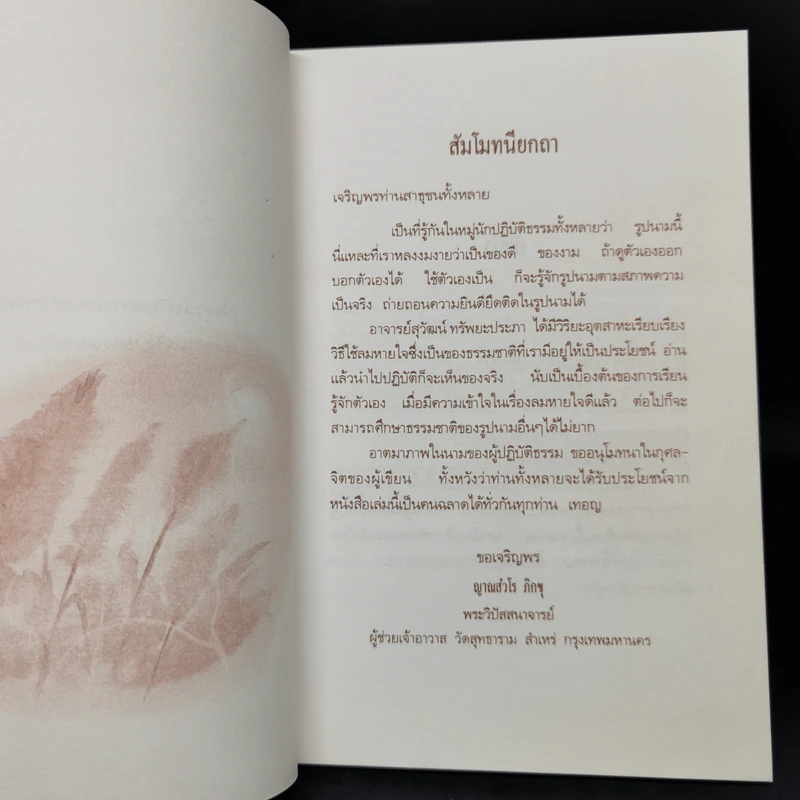 สัมโมทนียกถา
เจริญพรท่านสาธุชนทั้งหลาย
เป็นที่รู้กันในหมู่นักปฏิบัติธรรมทั้งหลายว่า รูปนามนี้
นี่แหละที่เราหลงงมงายว่าเป็นของดี ของงาม ถ้าดูตัวเองออก
บอกตัวเองได้ ใช้ตัวเองเป็น ก็จะรู้จักรูปนามตามสภาพความ
เป็นจริง ถ่ายถอนความยินดียึดติดในรูปนามได้
อาจารย์สุวัฒน์ ทรัพยะประภา ได้มีวิริยะอุตสาหะเรียบเรียง
วิธีใช้ลมหายใจซึ่งเป็นของธรรมชาติที่เรามีอยู่ให้เป็นประโยชน์ อ่าน
แล้วนำไปปฏิบัติก็จะเห็นของจริง นับเป็นเบื้องต้นของการเรียน
รู้จักตัวเอง เมื่อมีความเข้าใจในเรื่องลมหายใจดีแล้ว ต่อไปก็จะ
สามารถศึกษาธรรมชาติของรูปนามอื่นๆได้ไม่ยาก
อาตมาภาพในนามของผู้ปฏิบัติธรรม ขออนุโมทนาในกุศล-
จิตของผู้เขียน ทั้งหวังว่าท่านทั้งหลายจะได้รับประโยชน์จาก
หนังสือเล่มนี้เป็นคนฉลาดได้ทั่วกันทุกท่าน เทอญ
ขอเจริญพร
ญาณสํวโร ภิกขุ
พระวิปัสสนาจารย์
ผู้ช่วยเจ้าอาวาส วัดสุทธาราม สำเหร่ กรุงเทพมหานคร